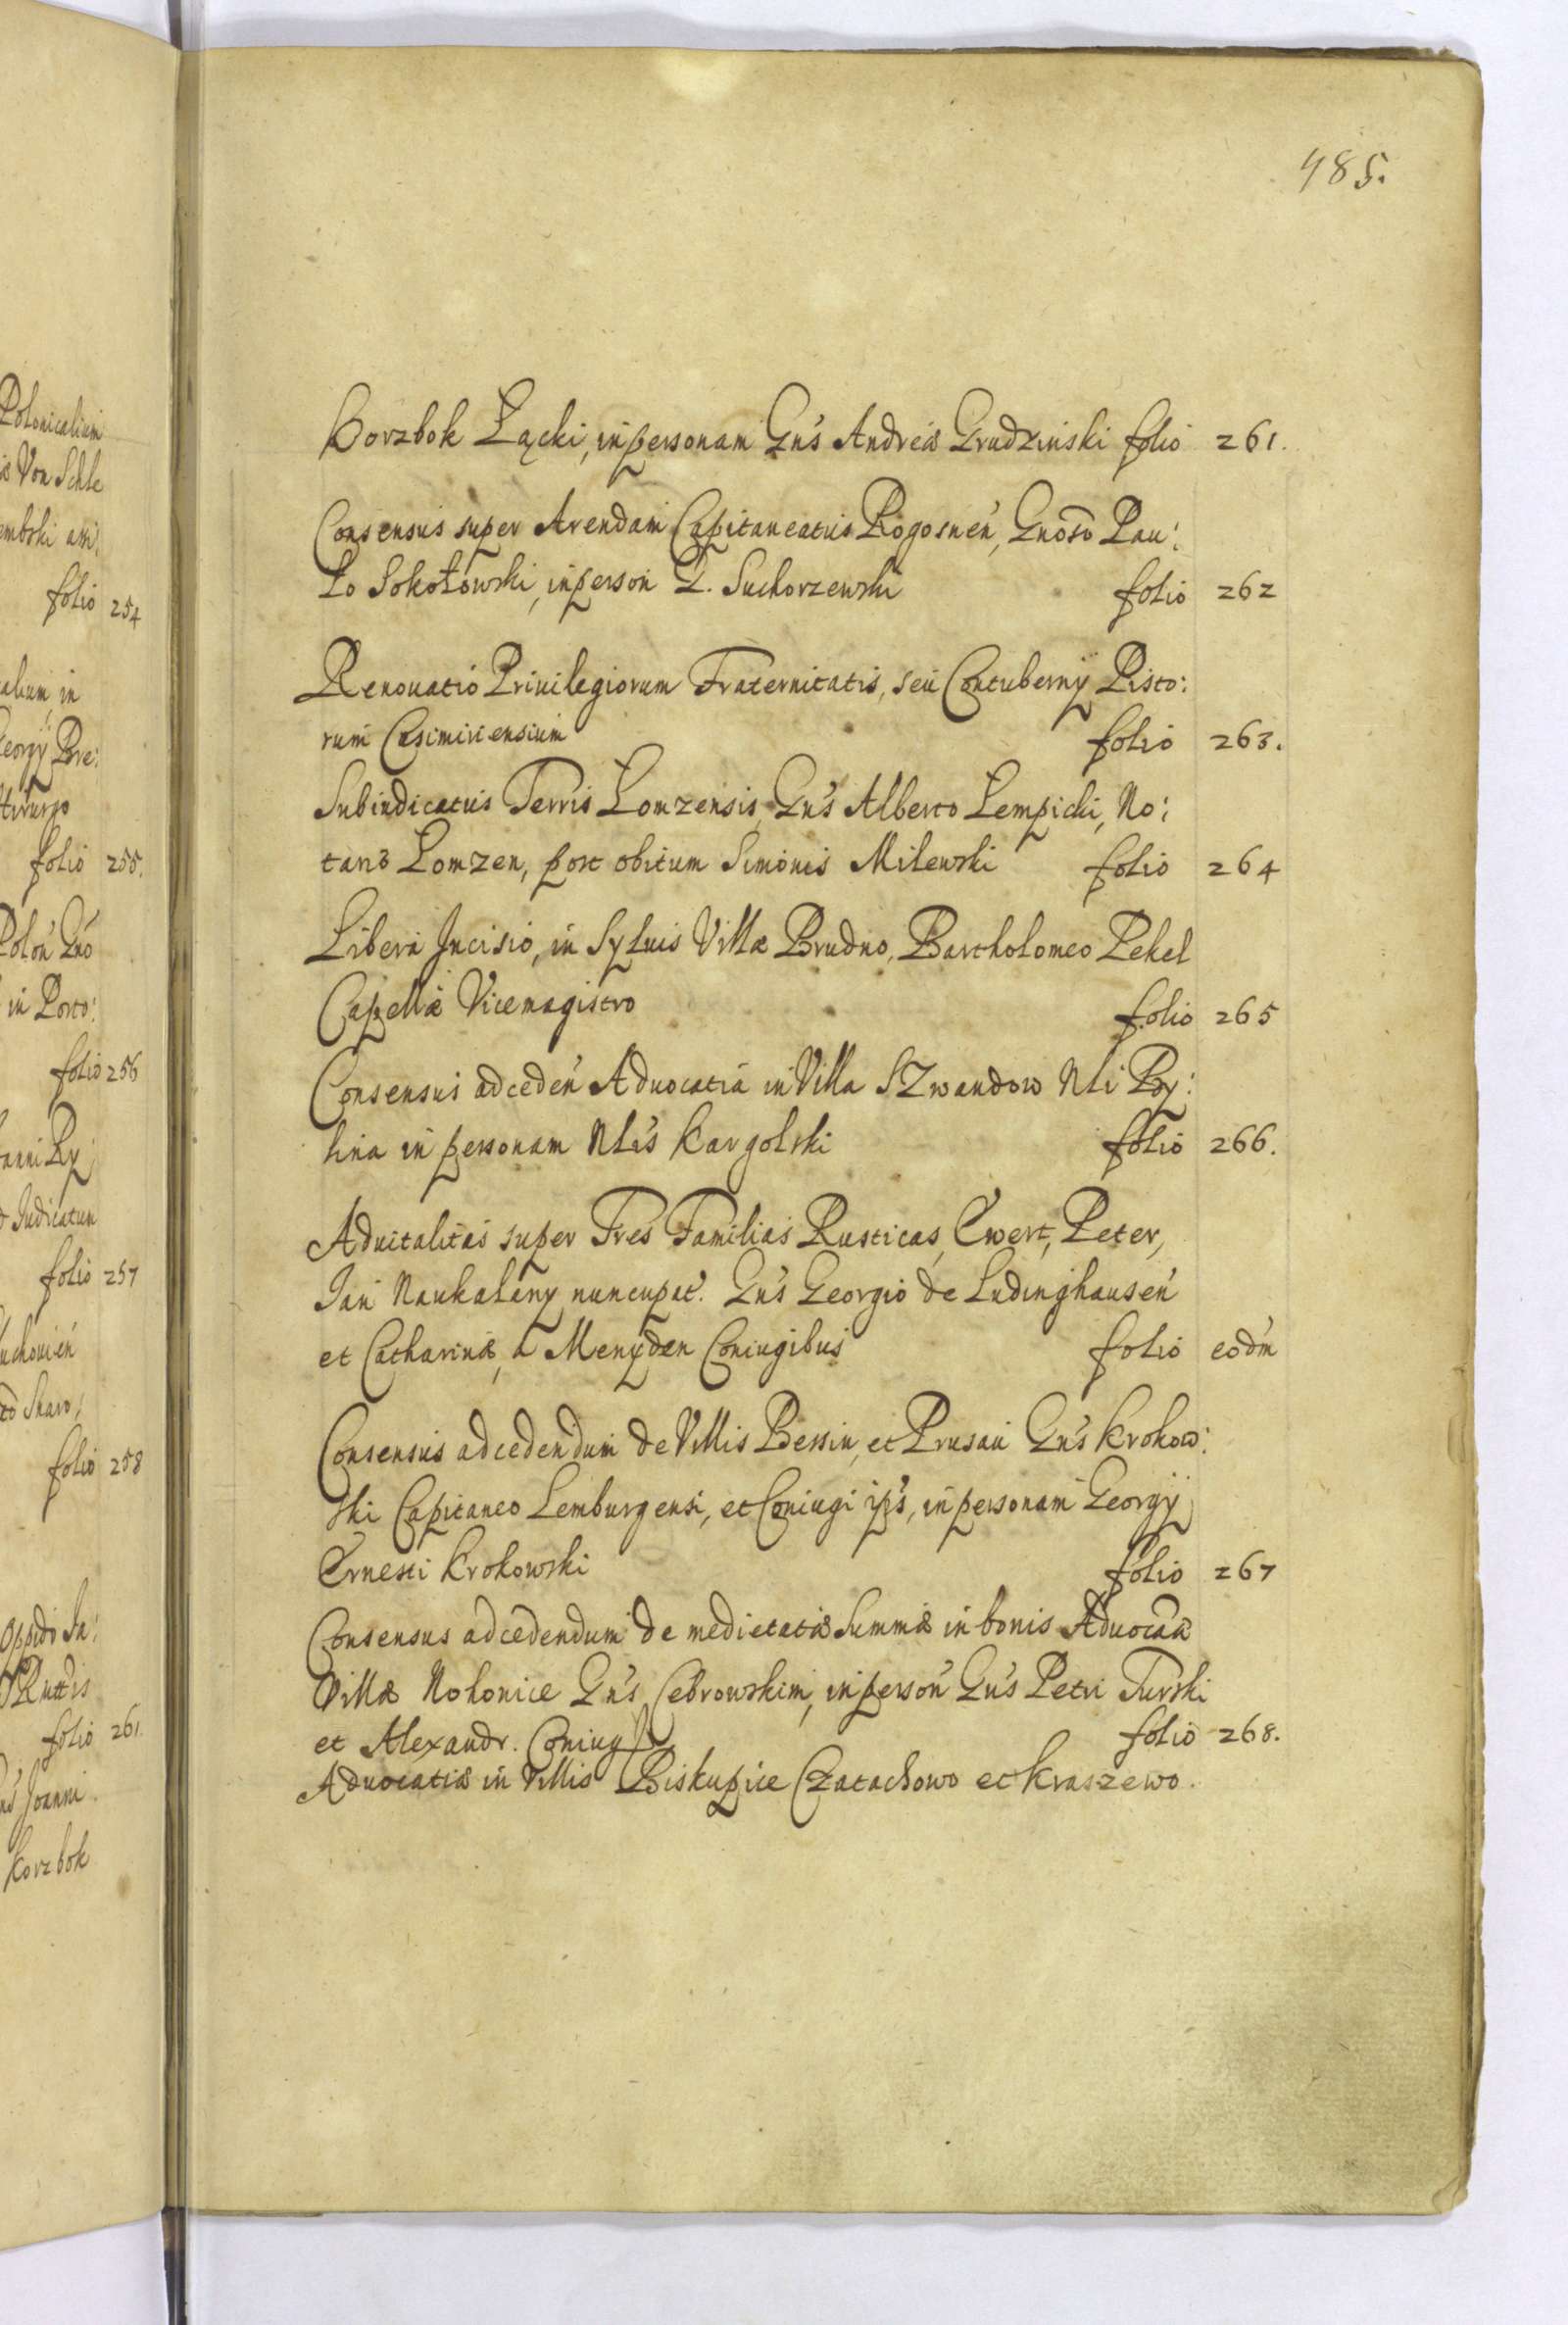 Polonicalium
is Von Schle
embski
folio 254
alium, in
Georgÿ Bre:
folio 255.
Polon Gno
in Porto:
folio 256
anni Ry
Iudicatum
folio 257
uchouien
folio 258
Oppido Ia:
folio 261.
Joanni
Korzbok
485.
Korzbok Łącki, in personam Gn's Andreæ Grudzinski folio 261.
Consensus super Arendam Capitaneatus Rogosnen, Gnoso Pau:
lo Sokołowski, in person G. Suchorzewski folio 262
Renouatio Priuilegiorum Fraternitatis, seu Contubernÿ Pisto:
rum Casimiriensium folio 263.
Subiudicatus Terris Lomzensis, Gn's Alberto Lempicki, No:
tario Lomzen, post obitum Simonis Milewski folio 264
Libera Incisio, in Syluis Villæ Brudno, Bartholomeo Pekel
Capellæ Vicemagistro folio 265
Consensus ad ceden Aduocatia in Villa SZwandow Nli By:
lina in personam Nli's Kargolski folio 266.
Aduitalitas super Tres Familias Rusticas, Ewert, Peter,
Jan Naukalany nuncupat. Gn's Georgio de Ludinghausen
et Catharinæ, a Menyden Coniugibus folio eodm
Consensus ad cedendum de Villis Bessin, et Prusau Gn's Krokow:
ski Capitaneo Lemburgensi, et Coniugi ip's, in personam Georgÿ
Ernesti Krokowski folio 267
Consensus ad cedendum de medietatis Summæ in bonis Aduocaæ
Villæ Nohonice Gn's Cebrowskim, in person Gn's Petri Turski
et Alexandr. Coniug folio 268.
Aduocatiæ in Villis Biskupice Czatachowo et Kraszewo.